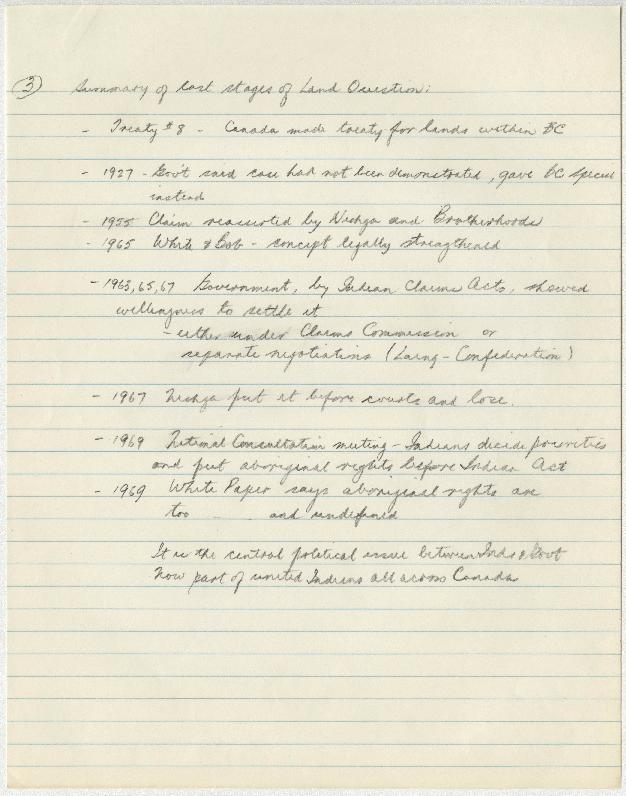 3 Summary of last stages of Land Question:
- Treaty #8 - Canada made treaty for lands within BC
- 1927 - Gov't said case had not been demonstrated, gave BC Special
instead
- 1955 Claim reasserted by Nishga and Brotherhoods
- 1965 White & Bob - concept legally strengthened
- 1963, 65, 67 Government, by Indian Claims Acts, showed
willingness to settle it
- either under Claims Commission or
separate negotiations (Laing - Confederation)
- 1967 Nishga put it before courts and lose.
- 1969 National Consultation meeting - Indians decide priorities
and put aboriginal rights before Indian Act
- 1969 White Paper says aboriginal rights are
too and undefined
It is the central political issue between Inds & Govt
Now part of united Indians all across Canada